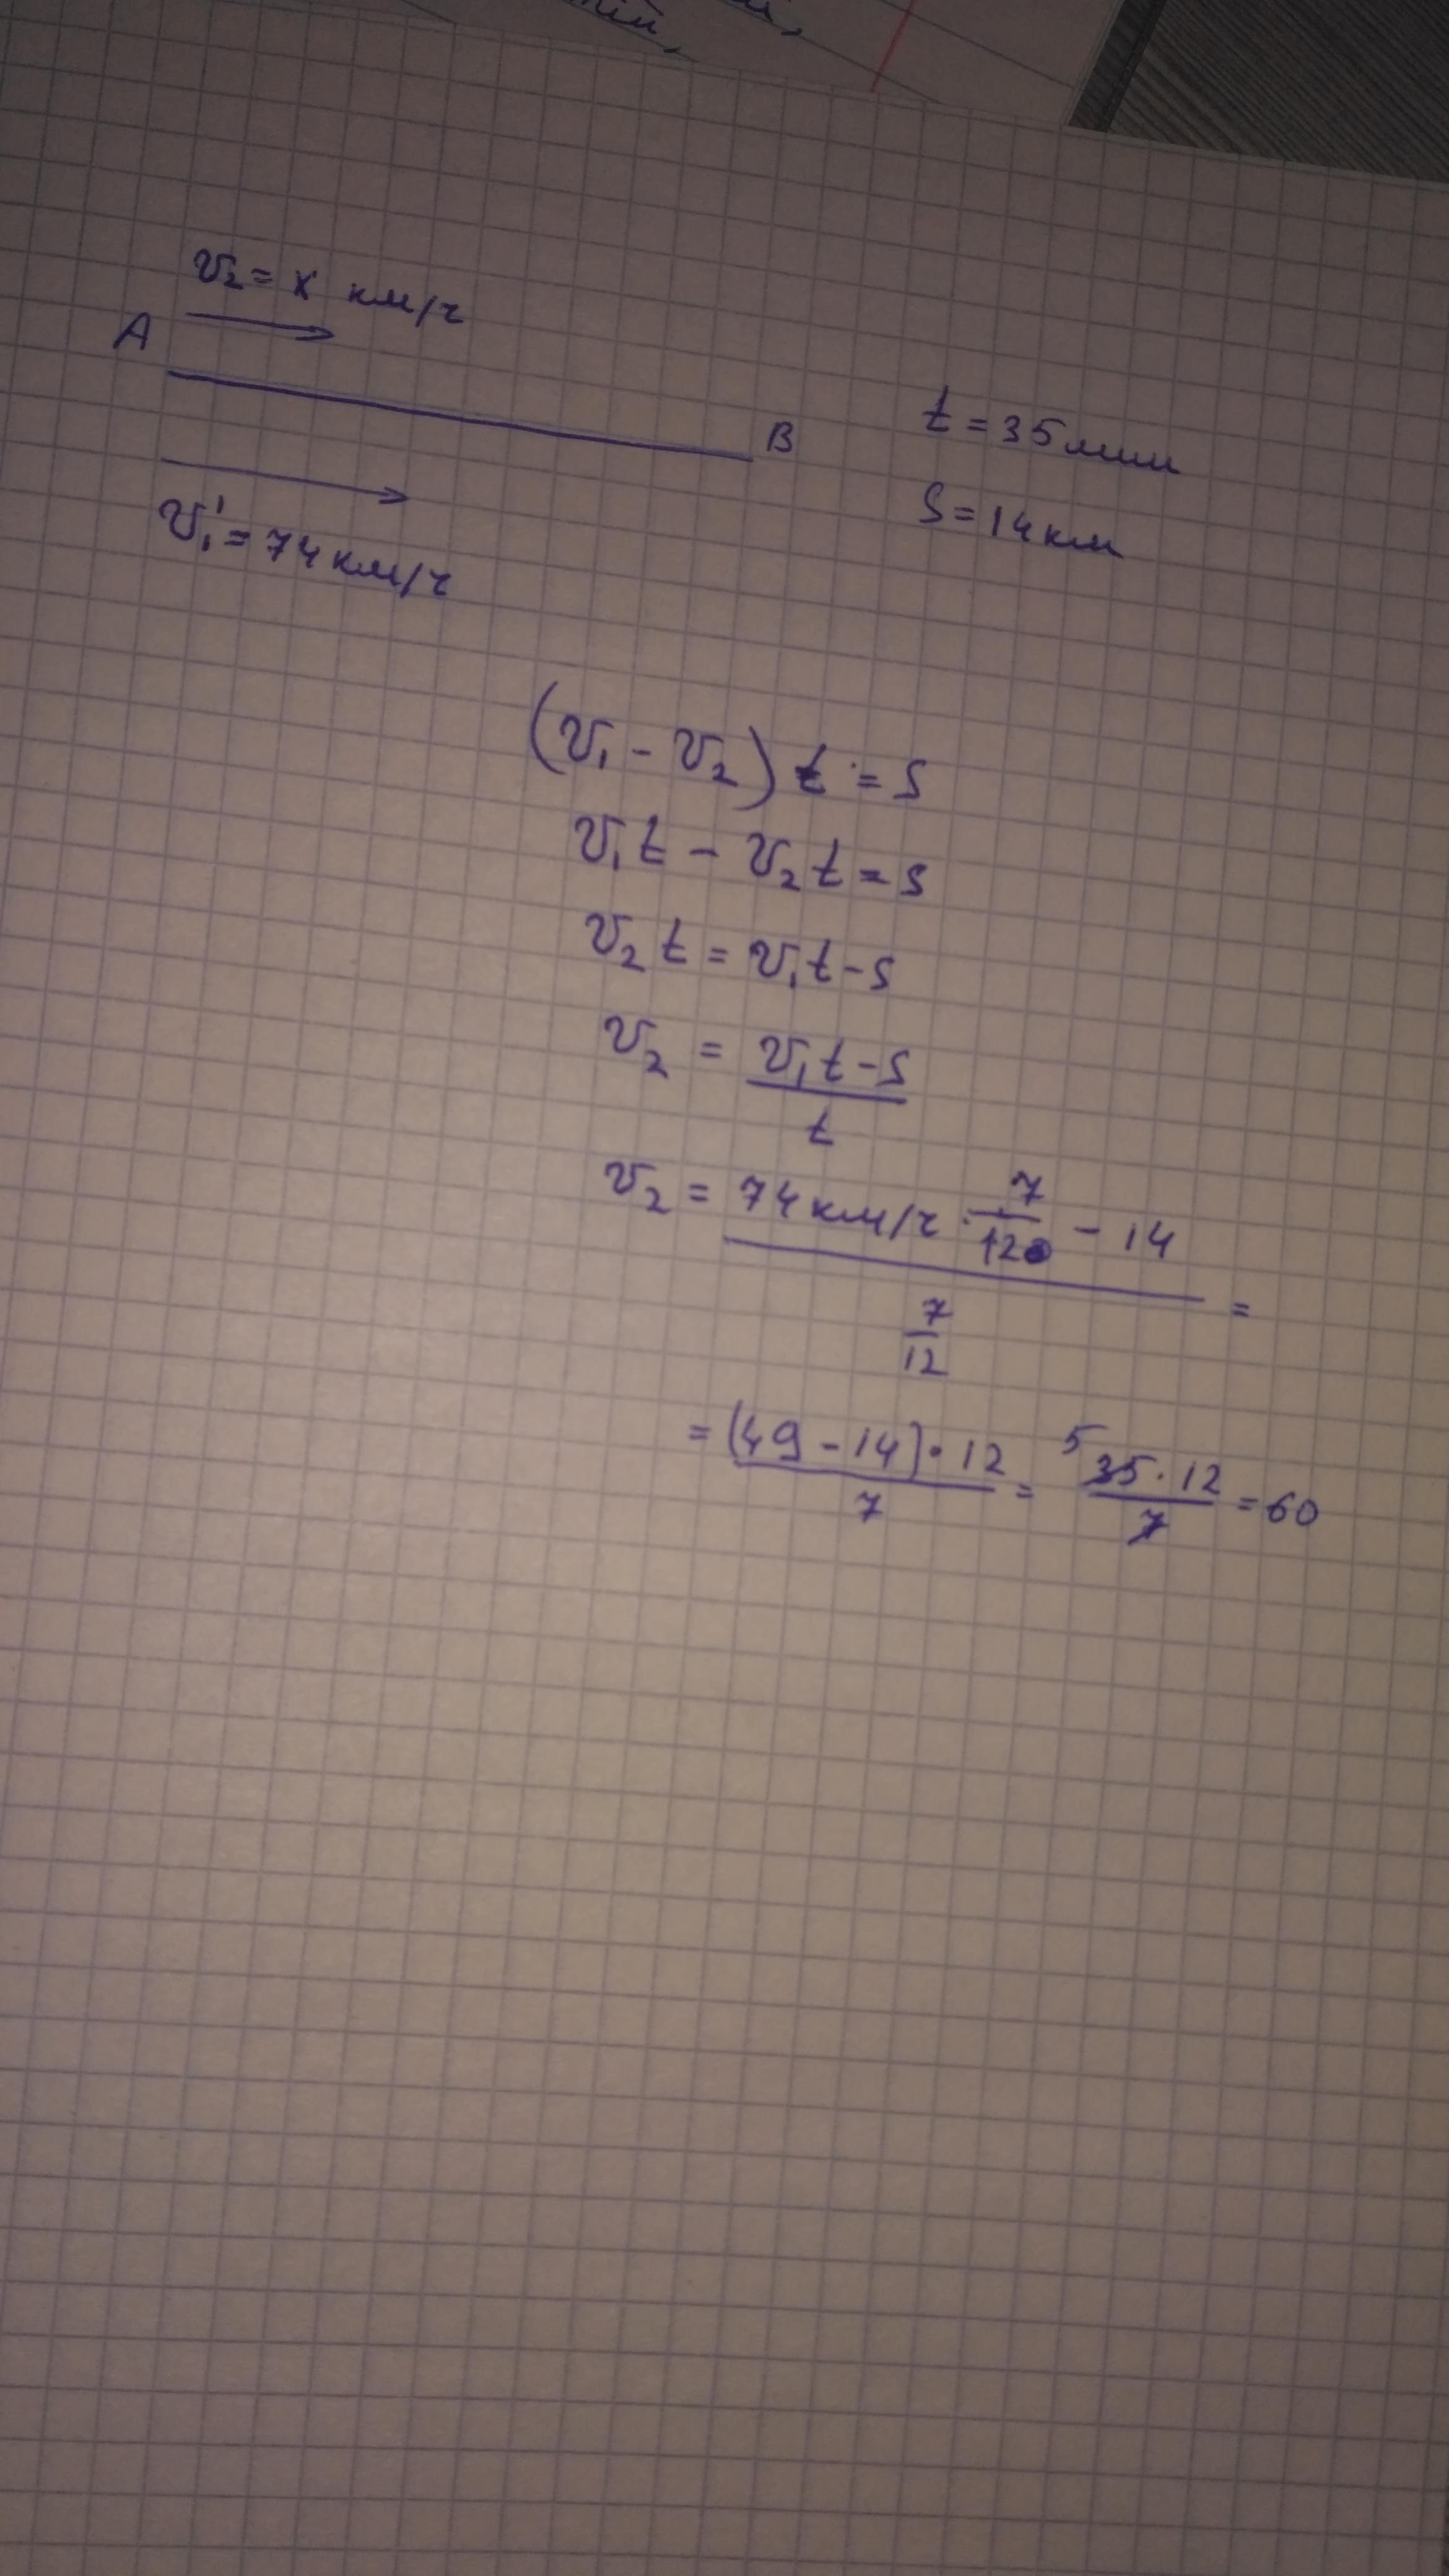 v₂ = x км/ч
A
B
v₁' = 74 км/ч
t = 35 мин
S = 14 км
(v₁ - v₂) t = S
v₁t - v₂t = S
v₂t = v₁t - S
v₂ = (v₁t - S)/t
v₂ = (74 км/ч · 7/12 - 14)/(7/12) =
= ((49 - 14) · 12)/7 = ⁵ (35 · 12)/7 = 60